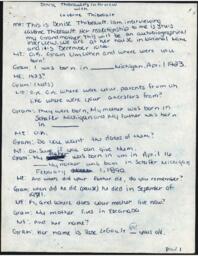 Denise Thibeault Interview
with
Laverne Thibeault
Me: This is Denise Thibeault. I am interviewing
Laverne Thibeault. Her relationship to me is she's
my Grandmother. This will be an autobiographical
interview. We are at her house in
and it's December 6th.
Me: O.K. Gram, when and where were you
born?
Gram: I was born in Michigan, April 1923.
Me: 1923?
Gram:
Me: O.K. O.K. where were your parents from um
like where were your ancestors from?
Gram: They were born, My mother was born in
Schaffer Michigan and my Father was born
in
Me: O.K.
Gram: Do you want the dates of them?
Me: Oh, Sure if you can give them.
Gram: My was born in um in April 14
My mother was born in Schaffer Michigan
February 1, 1890.
Me: And when did your father die, do you remember?
Gram: When did he (pause) He died in September of
1981.
Me: O.K. and where does your mother live now?
Gram: My mother lives in Escanaba
Me: And her name?
Gram: Her name is Rose years old.